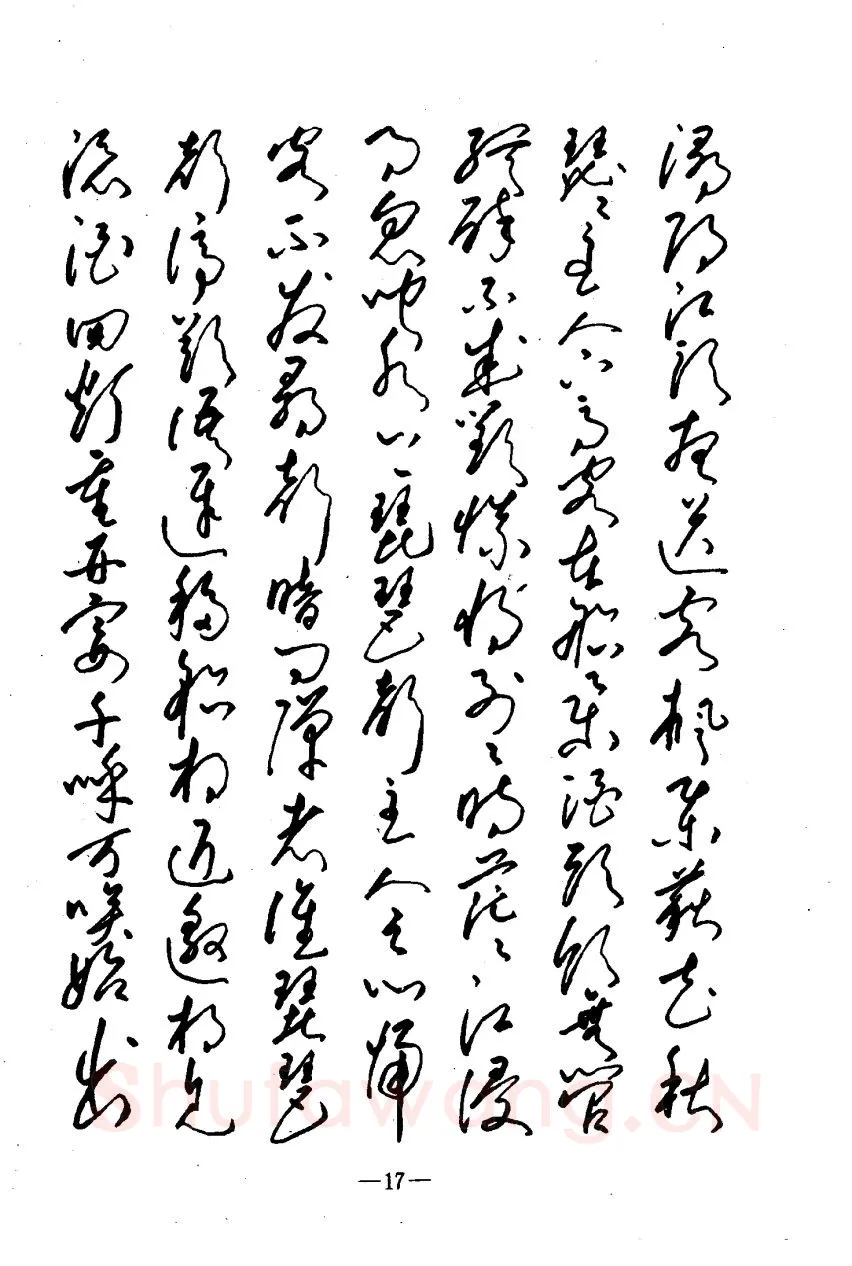 潯陽江頭夜送客楓葉荻花秋
瑟々主人下馬客在船舉酒欲飲無管
絃醉不成歡慘將別々時茫々江浸
月忽聞水上琵琶聲主人忘歸
客不發尋聲暗問彈者誰琵琶
聲停欲語遲移船相近邀相見
添酒回灯重開宴千呼万喚始出
—17—
Shufawang.CN